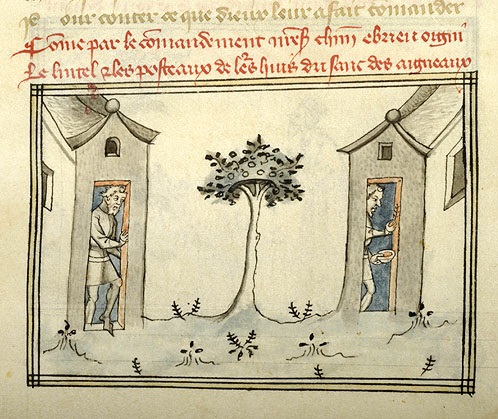 our conter ce que dieux leur a fait comander
Come par le comandement chun ebrieu
Le lintel & les posteaux de les huis du sanc des aigneaux